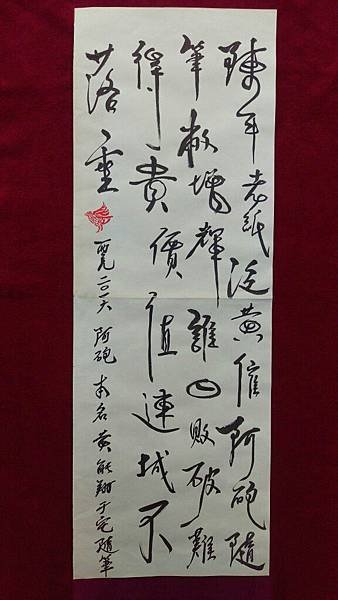 陳年老紙泛黃催阿砲隨
筆敝壜輝誰曰敗破難
得貴價值連城不
落重
二〇一六阿砲本名黃能翔于宅隨筆